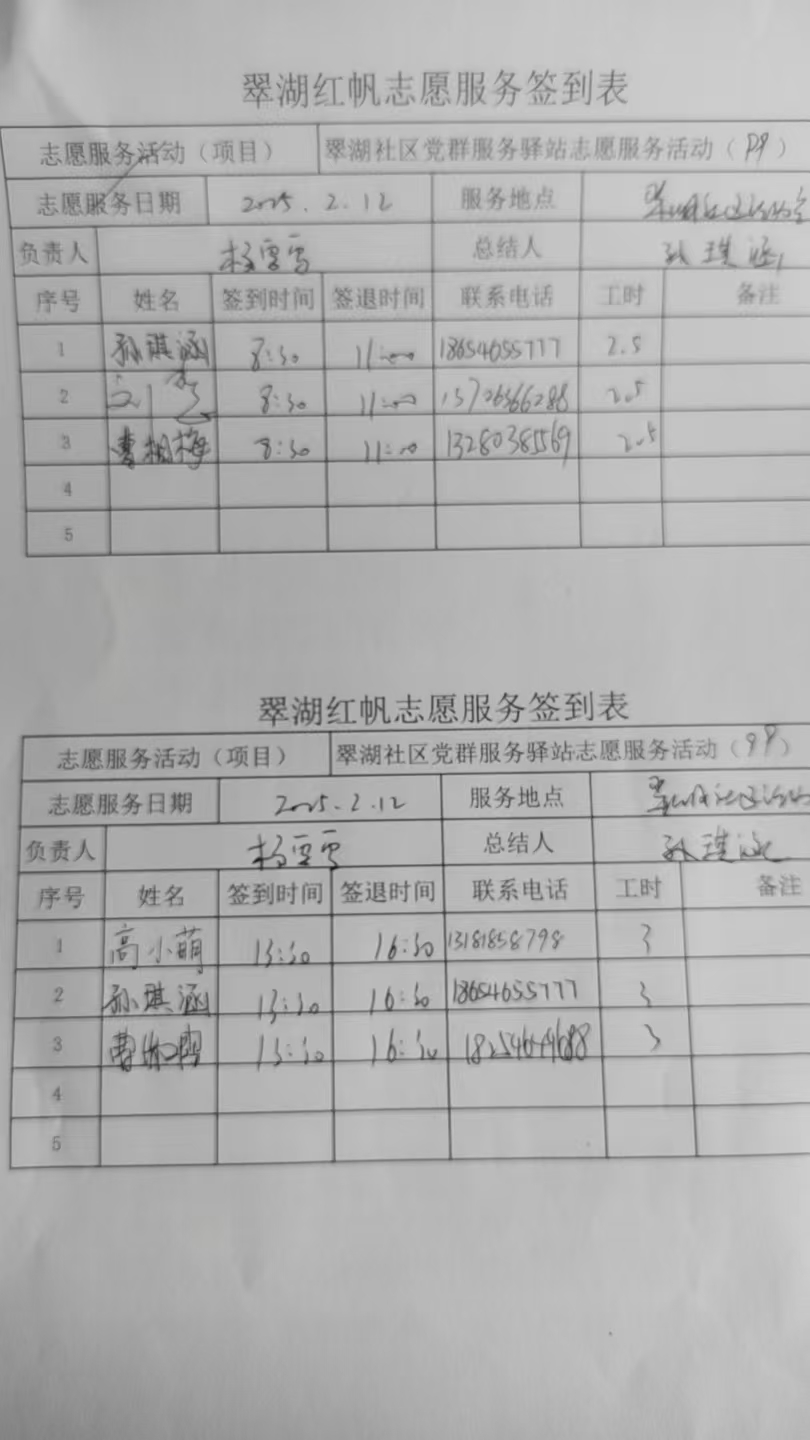 翠湖红帆志愿服务签到表
志愿服务活动（项目） 翠湖社区党群服务驿站志愿服务活动（ ）
志愿服务日期 2025.2.12 服务地点
负责人 杨雪雪 总结人 孙琪涵
序号 姓名 签到时间 签退时间 联系电话 工时 备注
1 孙琪涵 8:30 11:00 18654655777 2.5
2 刘 8:30 11:00 15706366288 2.5
3 曹相梅 8:30 11:00 13280385569 2.5
4
5
翠湖红帆志愿服务签到表
志愿服务活动（项目） 翠湖社区党群服务驿站志愿服务活动（ ）
志愿服务日期 2025.2.12 服务地点
负责人 杨雪雪 总结人 孙琪涵
序号 姓名 签到时间 签退时间 联系电话 工时 备注
1 高小萌 13:30 16:30 13181858798 3
2 孙琪涵 13:30 16:30 18654655777 3
3 曹 13:30 16:30 3
4
5